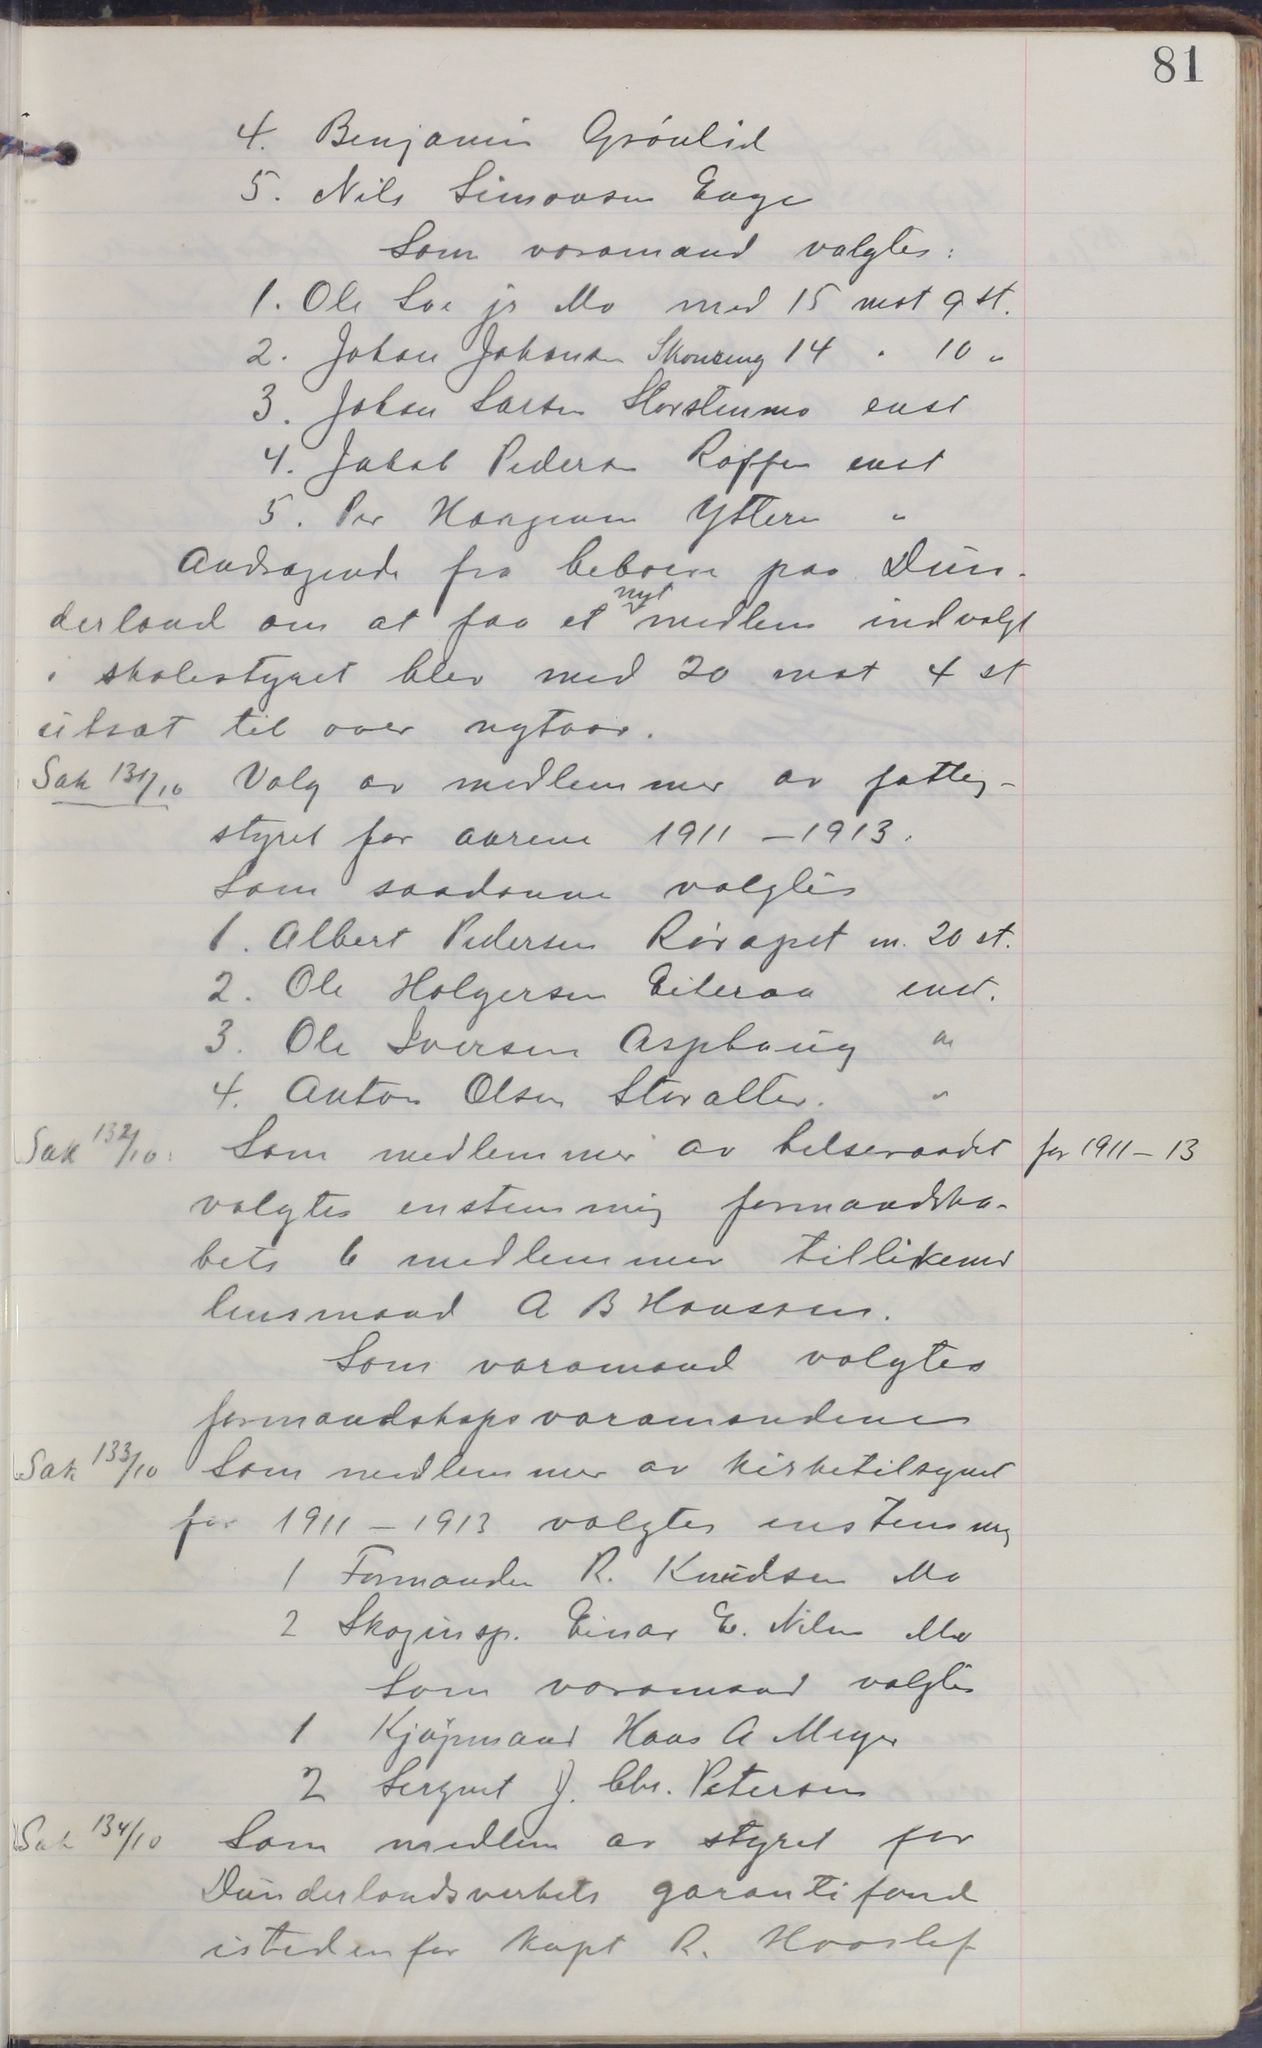 81
4. Benjamin Grönlid
5. Nils Simonsen Enge
Som varamænd valgtes:
1. Ole Soe jr Mo med 15 mot 9 st.
2. Johan Johansen Skonseng 14 " 10 "
3. Johan Larsen Storstenmo enst
4. Jakob Pedersen Røffen enst
5. Per Ytteren "
Andragende fra beboere paa Dun-
derland om at faa et nyt medlem indvalgt
i skolestyret blev med 20 mot 4 st
utsat til over nytaar.
Sak 131/10 Valg av medlemmer av fattig-
styret for aarene 1911 - 1913.
Som saadanne valgtes
1. Albert Pedersen Røvapet m. 20 st.
2. Ole Holgersen Eiteraa enst.
3. Ole Iversen Asphaug "
4. Anton Olsen Storalter. "
Sak 132/10: Som medlemmer av helseraadet for 1911 - 13
valgtes enstemmig formandska-
bets 6 medlemmer tillikemed
lensmand A B Hansson.
Som varamænd valgtes
formandskapsvaramændene
Sak 133/10 Som medlemmer av kirketilsynet
for 1911 - 1913 valgtes enstemmig
1 Formanden R. Knudsen Mo
2 Skoginsp. Einar E. Nilsen Mo
Som varamænd valgtes
1 Kjøpmand Hans A Meyer
2 Sergent J. Chr. Petersen
Sak 134/10 Som medlem av styret for
Dunderlandsverkets garantifond
istedenfor kapt R. Haaslef